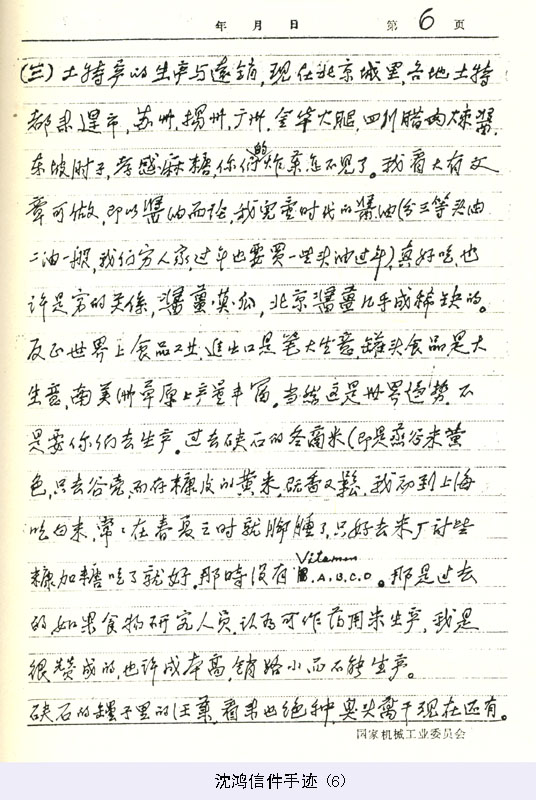 年 月 日 第 6 页
(三)土特产的生产与远销,现在北京城里,各地土特
都来逞市,苏州,扬州,广州,金华火腿,四川腊肉辣酱,
东坡肘子,孝感麻糖,你们的炸菜怎不见了。我看大有文
章可做,即以酱油而论,我儿童时代的酱油(分三等头油
二油一般,我们穷人家,过年也要买一些头油过年)真好吃,也
许是穷的关係,酱薑莫瓜,北京酱薑几乎成稀缺的。
反正世界上食品工业,进出口是笔大生意,罐头食品是大
生意,南美洲草原上产量丰富。当然这是世界趋势,不
是要你们去生产。过去硖石的冬窩米(即是蒸谷米黄
色,只去谷壳,而存糠皮的黄米,既香又鬆,我初到上海
吃白米,常々在春夏之时就脚腫了,只好去米厂讨些
糠加糖吃了就好。那時没有Vitamen B.A.B.C.D。那是过去
的如果食物研究人员,认为可作药用来生产,我是
很赞成的,也许成本高,销路小而不能生产。
硖石的罈子里的 菜,看来也绝种,臭头萬干现在还有。
国家机械工业委员会
沈鸿信件手迹(6)